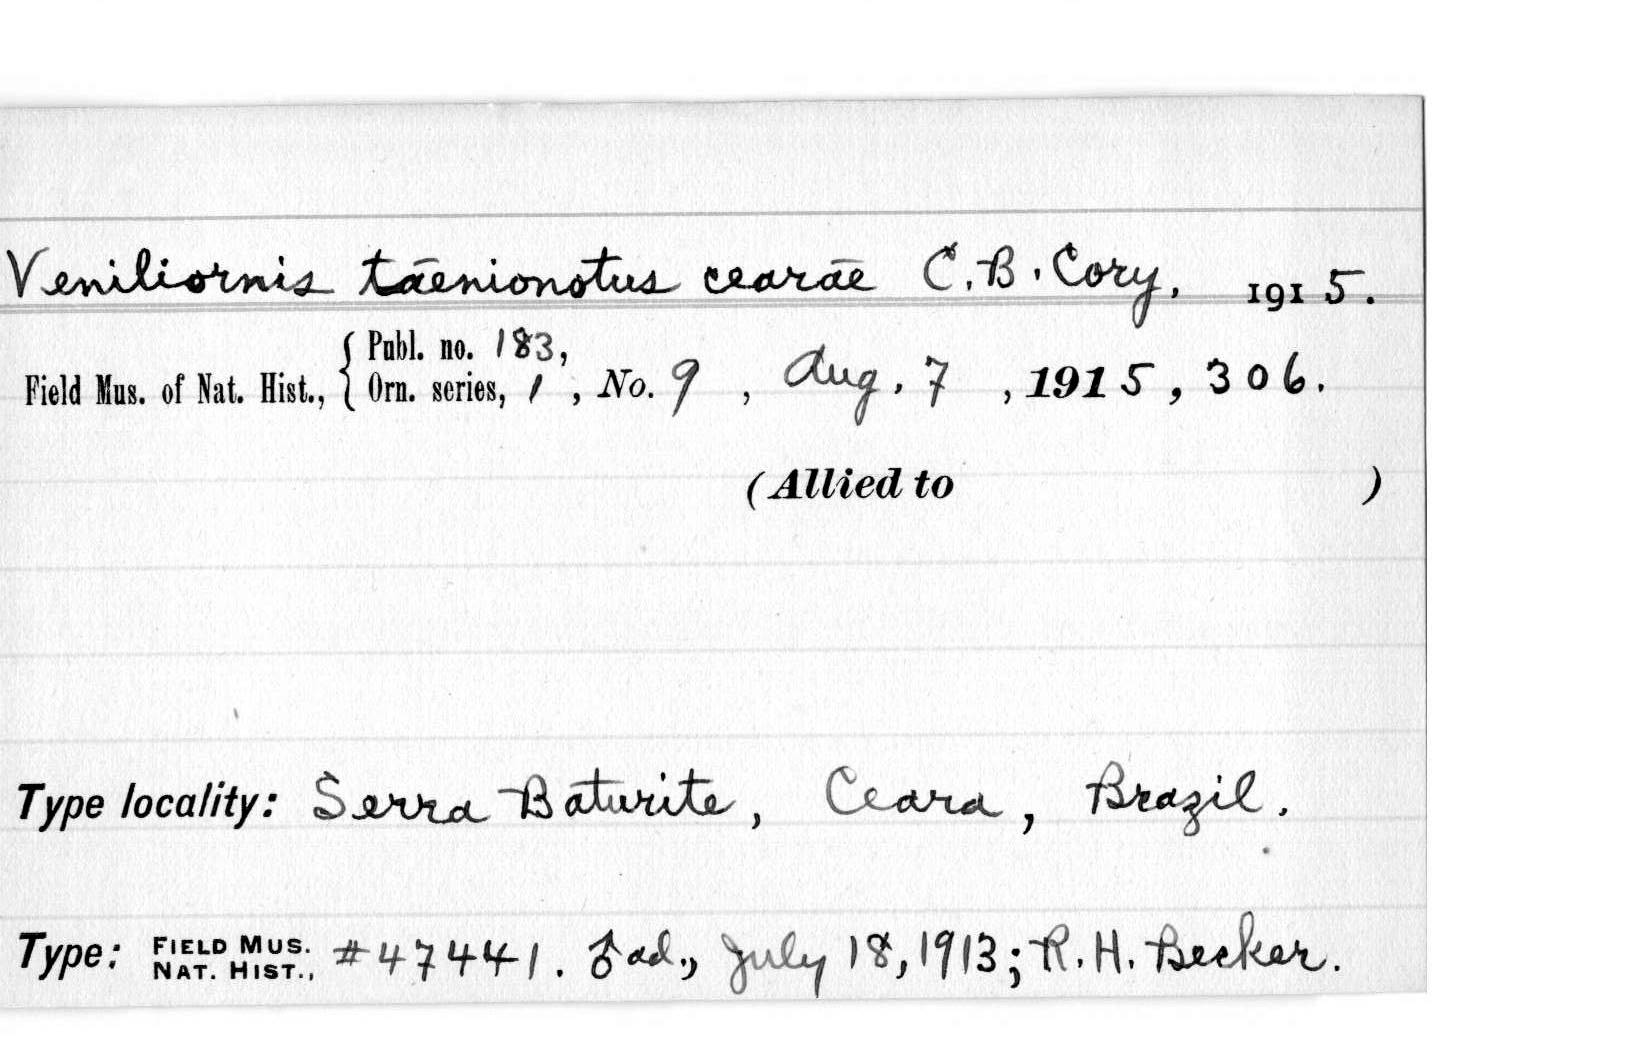 Veniliornis taenionotus cearae C.B. Cory, 1915.
Field Mus. of Nat. Hist., { Publ. no. 183,
Orn. series, 1, No. 9, Aug. 7, 1915, 306.
(Allied to )
Type locality: Serra Baturite, Ceara, Brazil.
Type: FIELD MUS. NAT. HIST., #47441. ♂ ad., July 18, 1913; R. H. Becker.